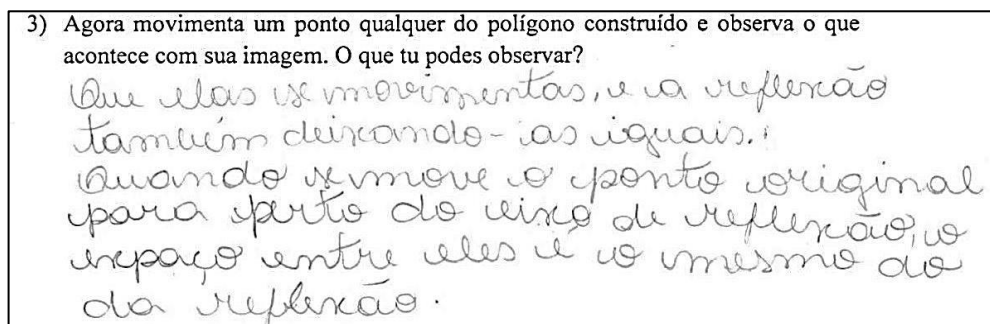 3) Agora movimenta um ponto qualquer do polígono construído e observa o que
acontece com sua imagem. O que tu podes observar?
Que elas se movimentas, e a reflexão
também deixando-as iguais.
Quando se move o ponto original
para perto do eixo de reflexão, o
espaço entre eles é o mesmo do
da reflexão.